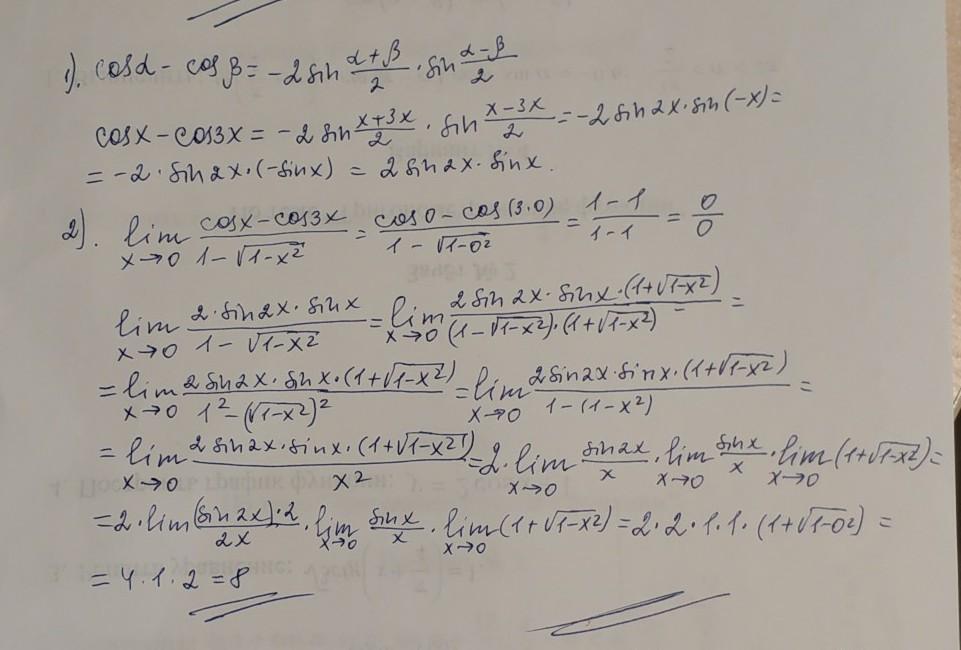 1). cosα − cosβ = −2 sin (α+β)/2 · sin (α−β)/2
cosx − cos3x = −2 sin (x+3x)/2 · sin (x−3x)/2 = −2 sin2x · sin(−x) =
= −2 · sin2x · (−sinx) = 2 sin2x · sinx.
2). lim x→0 (cosx − cos3x)/(1 − √(1−x²)) = (cos0 − cos(3·0))/(1 − √(1−0²)) = (1−1)/(1−1) = 0/0
lim x→0 (2·sin2x · sinx)/(1 − √(1−x²)) = lim x→0 (2 sin2x · sinx · (1+√(1−x²)))/((1−√(1−x²))·(1+√(1−x²))) =
= lim x→0 (2 sin2x · sinx · (1+√(1−x²)))/(1² − (√(1−x²))²) = lim x→0 (2 sin2x · sinx · (1+√(1−x²)))/(1−(1−x²)) =
= lim x→0 (2 sin2x · sinx · (1+√(1−x²)))/x² = 2 · lim x→0 sin2x/x · lim x→0 sinx/x · lim x→0 (1+√(1−x²)) =
= 2 · lim ((sin2x)·2)/2x · lim x→0 sinx/x · lim x→0 (1+√(1−x²)) = 2·2·1·1·(1+√(1−0²)) =
= 4·1·2 = 8